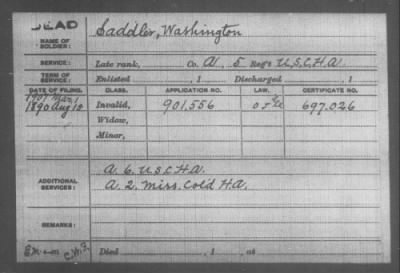 DEAD
NAME OF SOLDIER: Saddler, Washington
SERVICE: Late rank, Co. A 5 Reg't U.S.C.H.A.
TERM OF SERVICE: Enlisted , 1 Discharged , 1
DATE OF FILING. CLASS. APPLICATION NO. LAW. CERTIFICATE NO.
1907 Mar 1
1890 Aug 18 Invalid, 901,556 697.026
Widow,
Minor,
ADDITIONAL SERVICES: A. 6. U.S.C.H.A.
A. 2. Miss. Cold H.A.
REMARKS:
Died , 1 , at